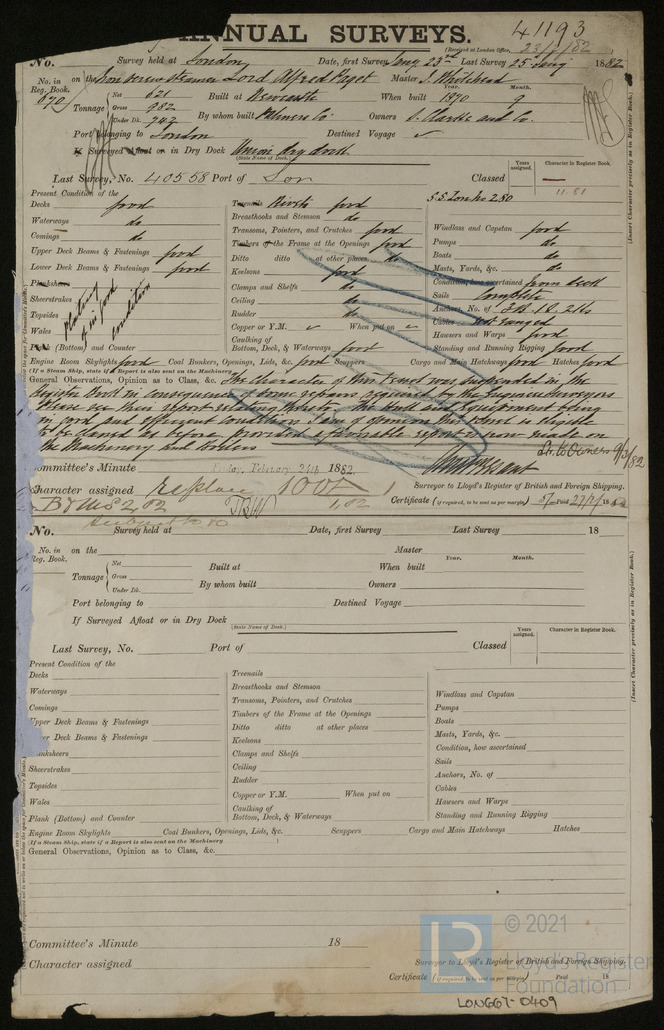 ANNUAL SURVEYS.
41193
(Received at London Office,
No. Survey held at London Date, first Survey 23rd Last Survey 25 1882
No. in Reg. Book. on the Iron screw steamer Lord Alfred Paget Master J. Whitehead
870 Tonnage Net 621 Built at Newcastle When built Year. 1870 Month. 9
Gross 982
Under Dk. 743 By whom built Palmers Co. Owners Clarke and Co.
Port belonging to London Destined Voyage
If Surveyed Afloat or in Dry Dock Union Dry dock
(State Name of Dock.)
(Insert Character precisely as in Register Book.)
Last Survey, No. 40558 Port of Lon Classed Years assigned. Character in Register Book.
11.81
Present Condition of the
Decks good
Waterways do
Comings do
Upper Deck Beams & Fastenings good
Lower Deck Beams & Fastenings good
Planksheers
Sheerstrakes
Topsides
Wales
Plank (Bottom) and Counter
plating in good condition
Treenails Rivets good
Breasthooks and Stemson do
Transoms, Pointers, and Crutches good
Timbers of the Frame at the Openings good
Ditto ditto at other places do
Keelsons good
Clamps and Shelfs do
Ceiling do
Rudder do
Copper or Y.M. When put on
Caulking of Bottom, Deck, & Waterways good
S.S. Lon No 2.80
Windlass and Capstan good
Pumps do
Boats do
Masts, Yards, &c. do
Condition, how ascertained from deck
Sails complete
Anchors, No. of
Cables not ranged
Hawsers and Warps good
Standing and Running Rigging good
Engine Room Skylights good Coal Bunkers, Openings, Lids, &c. good Scuppers Cargo and Main Hatchways good Hatches good
(If a Steam Ship, state if a Report is also sent on the Machinery
General Observations, Opinion as to Class, &c. The character of this vessel was suspended in the
Register Book in consequence of some repairs required by the Engineer Surveyors
Please see their report relating thereto. The hull and equipment being
in good and efficient condition I am of opinion this vessel is eligible
to be classed as before provided a favorable report upon made on
the Machinery and boilers
Lr. to Owners 9/3/82
Committee's Minute Friday, February 24th 1882.
Surveyor to Lloyd's Register of British and Foreign Shipping.
Character assigned replace 100A1
Certificate (if required, to be sent as per margin) Paid 18
B&MS 2,82 1,82
No. Survey held at Date, first Survey Last Survey 18
No. in Reg. Book. on the Master
Tonnage Net Built at When built Year. Month.
Gross
Under Dk. By whom built Owners
Port belonging to Destined Voyage
If Surveyed Afloat or in Dry Dock
(State Name of Dock.)
(Insert Character precisely as in Register Book.)
Last Survey, No. Port of Classed Years assigned. Character in Register Book.
Present Condition of the
Decks
Waterways
Comings
Upper Deck Beams & Fastenings
er Deck Beams & Fastenings
nksheers
Sheerstrakes
Topsides
Wales
Plank (Bottom) and Counter
Treenails
Breasthooks and Stemson
Transoms, Pointers, and Crutches
Timbers of the Frame at the Openings
Ditto ditto at other places
Keelsons
Clamps and Shelfs
Ceiling
Rudder
Copper or Y.M. When put on
Caulking of Bottom, Deck, & Waterways
Windlass and Capstan
Pumps
Boats
Masts, Yards, &c.
Condition, how ascertained
Sails
Anchors, No. of
Cables
Hawsers and Warps
Standing and Running Rigging
Engine Room Skylights Coal Bunkers, Openings, Lids, &c. Scuppers Cargo and Main Hatchways Hatches
(If a Steam Ship, state if a Report is also sent on the Machinery
General Observations, Opinion as to Class, &c.
Committee's Minute 18
Character assigned
Surveyor to Lloyd's Register of British and Foreign Shipping.
Certificate (if required, to be sent as per margin) Paid 18
LR © 2021
Lloyd's Register
Foundation
LON667-0409